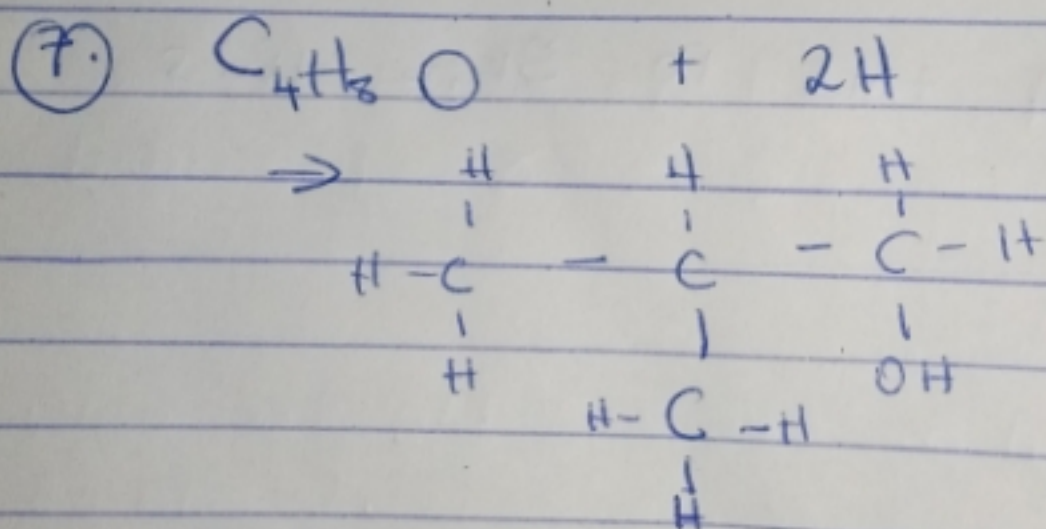 7. C4H8O + 2H
→ H H H
H - C - C - C - H
H OH
H - C - H
H